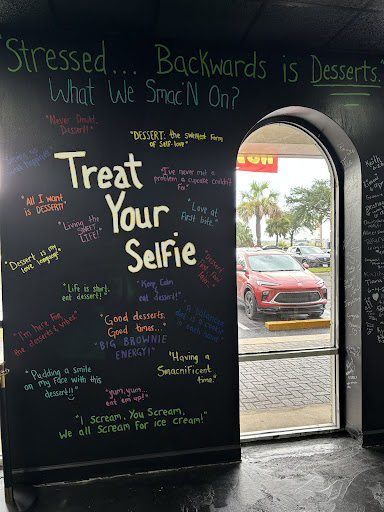 "Stressed... Backwards is Desserts."
What We Smac'N On?
"Never Doubt,
Dessert!"
"DESSERT: the sweetest form
of self-love"
Treat
Your
Selfie
"I've never met a
problem a cupcake couldn't
fix"
"All I want
is DESSERT!"
"Love at
first bite."
"Living the
SWEET
LIFE!"
"Dessert is my
love language"
"Life is short,
eat dessert!"
"Keep Calm
&
eat dessert!"
"I'm here for
the desserts & vibes."
"Good desserts,
Good times..."
"BIG BROWNIE
ENERGY!"
"Having a
Smacnificent
time."
"Pudding a smile
on my face with this
dessert!!"
"yum, yum...
eat em up!"
"I Scream, You Scream,
We all scream for ice cream!"